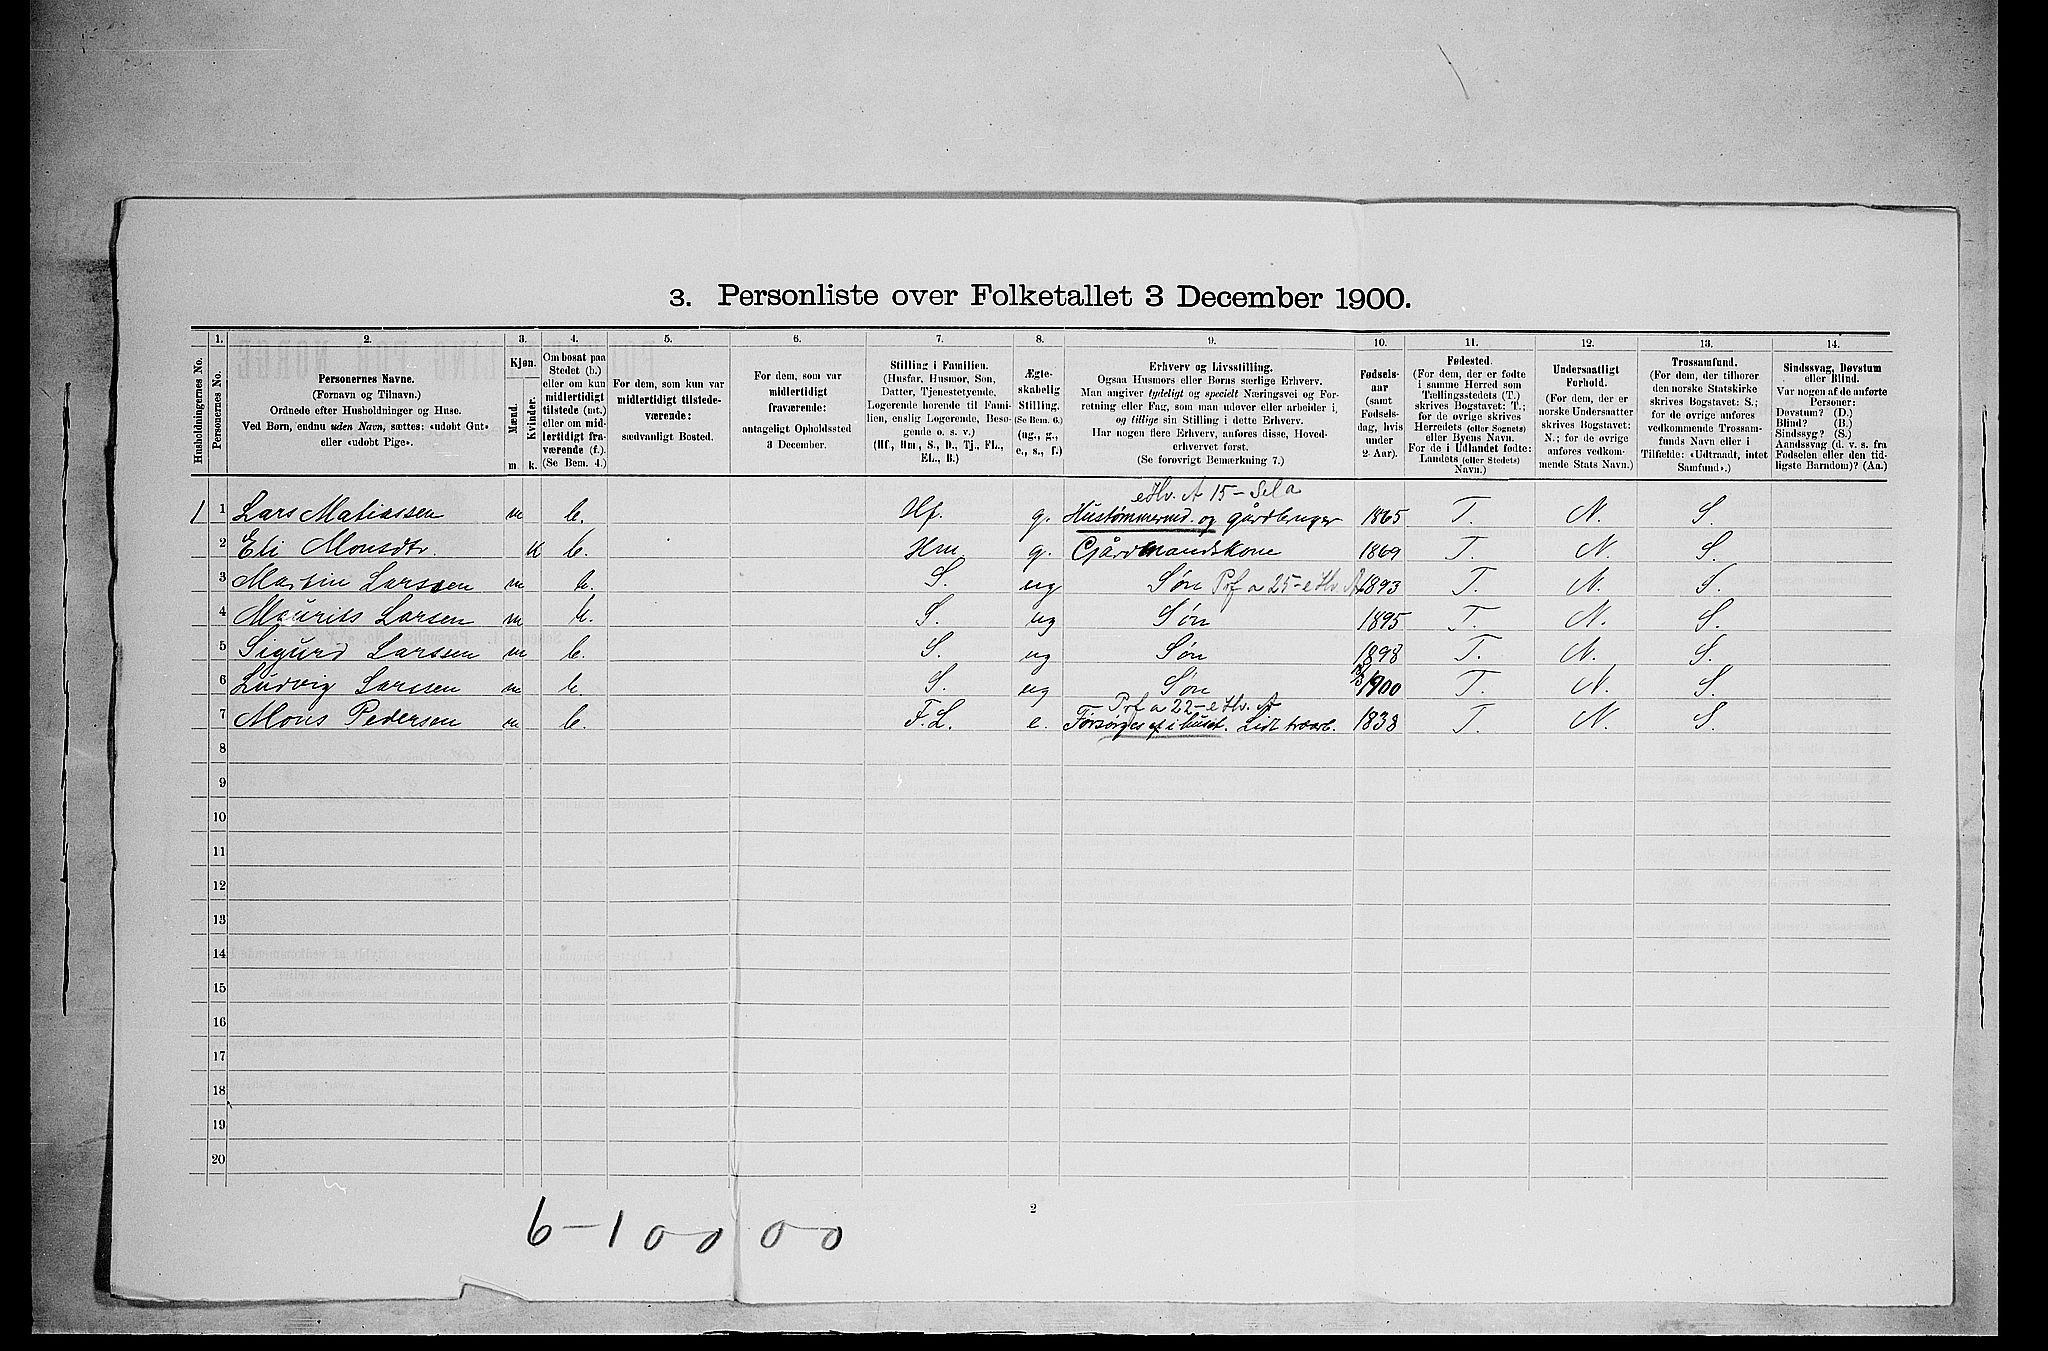 3. Personliste over Folketallet 3 December 1900.
1. 2. 3. 4. 5. 6. 7. 8. 9. 10. 11. 12. 13. 14.
Husholdningernes No.
Personernes No.
Personernes Navne.
(Fornavn og Tilnavn.)
Ordnede efter Husholdninger og Huse.
Ved Børn, endnu uden Navn, sættes: «udøbt Gut»
eller «udøbt Pige».
Kjøn.
Mænd.
Kvinder.
m. k.
Om bosat paa
Stedet (b.)
eller om kun
midlertidigt
tilstede (mt.)
eller om mid-
lertidigt fra-
værende (f.).
(Se Bem. 4.)
For dem, som kun var
midlertidigt tilstede-
værende:
sædvanligt Bosted.
For dem, som var
midlertidigt
fraværende:
antageligt Opholdssted
3 December.
Stilling i Familien.
(Husfar, Husmor, Søn,
Datter, Tjenestetyende,
Logerende hørende til Fami-
lien, enslig Logerende, Besø-
gende o. s. v.)
(Hf., Hm., S., D., Tj., FL.,
EL., B.)
Ægte-
skabelig
Stilling.
(Se Bem. 6.)
(ug., g.,
e., s., f.)
Erhverv og Livsstilling.
Ogsaa Husmors eller Børns særlige Erhverv.
Man angiver tydeligt og specielt Næringsvei og For-
retning eller Fag, som man udøver eller arbeider i,
og tillige sin Stilling i dette Erhverv.
Har nogen flere Erhverv, anføres disse, Hoved-
erhvervet først.
(Se forøvrigt Bemærkning 7.)
Fødsels-
aar
(samt
Fødsels-
dag, hvis
under
2 Aar).
Fødested.
(For dem, der er fødte
i samme Herred som
Tællingsstedets (T.)
skrives Bogstavet: T.;
for de øvrige skrives
Herredets (eller Sognets)
eller Byens Navn.
For de i Udlandet fødte:
Landets (eller Stedets)
Navn.)
Undersaatligt
Forhold.
(For dem, der er
norske Undersaatter
skrives Bogstavet:
N.; for de øvrige
anføres vedkom-
mende Stats Navn.)
Trossamfund.
(For dem, der tilhører
den norske Statskirke
skrives Bogstavet: S.;
for de øvrige anføres
vedkommende Trossam-
funds Navn eller i
Tilfælde: «Udtraadt, intet
Samfund».)
Sindssvag, Døvstum
eller Blind.
Var nogen af de anførte
Personer:
Døvstum? (D.)
Blind? (B.)
Sindssyg? (S.)
Aandssvag (d. v. s. fra
Fødselen eller den tid-
ligste Barndom)? (Aa.)
eHv. A 15 - Sela
1 1 Lars Matiassen m b. Hf. g. Hustømmermd. og gårdbruger 1865 T. N. S.
2 Eli Monsdtr. K b. Hm g. Gjårdmandskone 1869 T. N. S.
3 Martin Larssen m b. S. ug Søn Prf a 25 - eHv. A 1893 T. N. S.
4 Maurits Larsen m b. S. ug Søn 1895 T. N. S.
5 Sigurd Larssen m b. S. ug Søn 1898 T. N. S.
6 Ludvig Larssen m b. S. ug Søn 1900 T. N. S.
Prf a 22 - eHv. A
7 Mons Pedersen m b. F.L. e. Forsørges af i huset. Lidt træarb. 1838 T. N. S
8
9
10
11
12
13
14
15
16
17
18
19
20
2
6-100 00